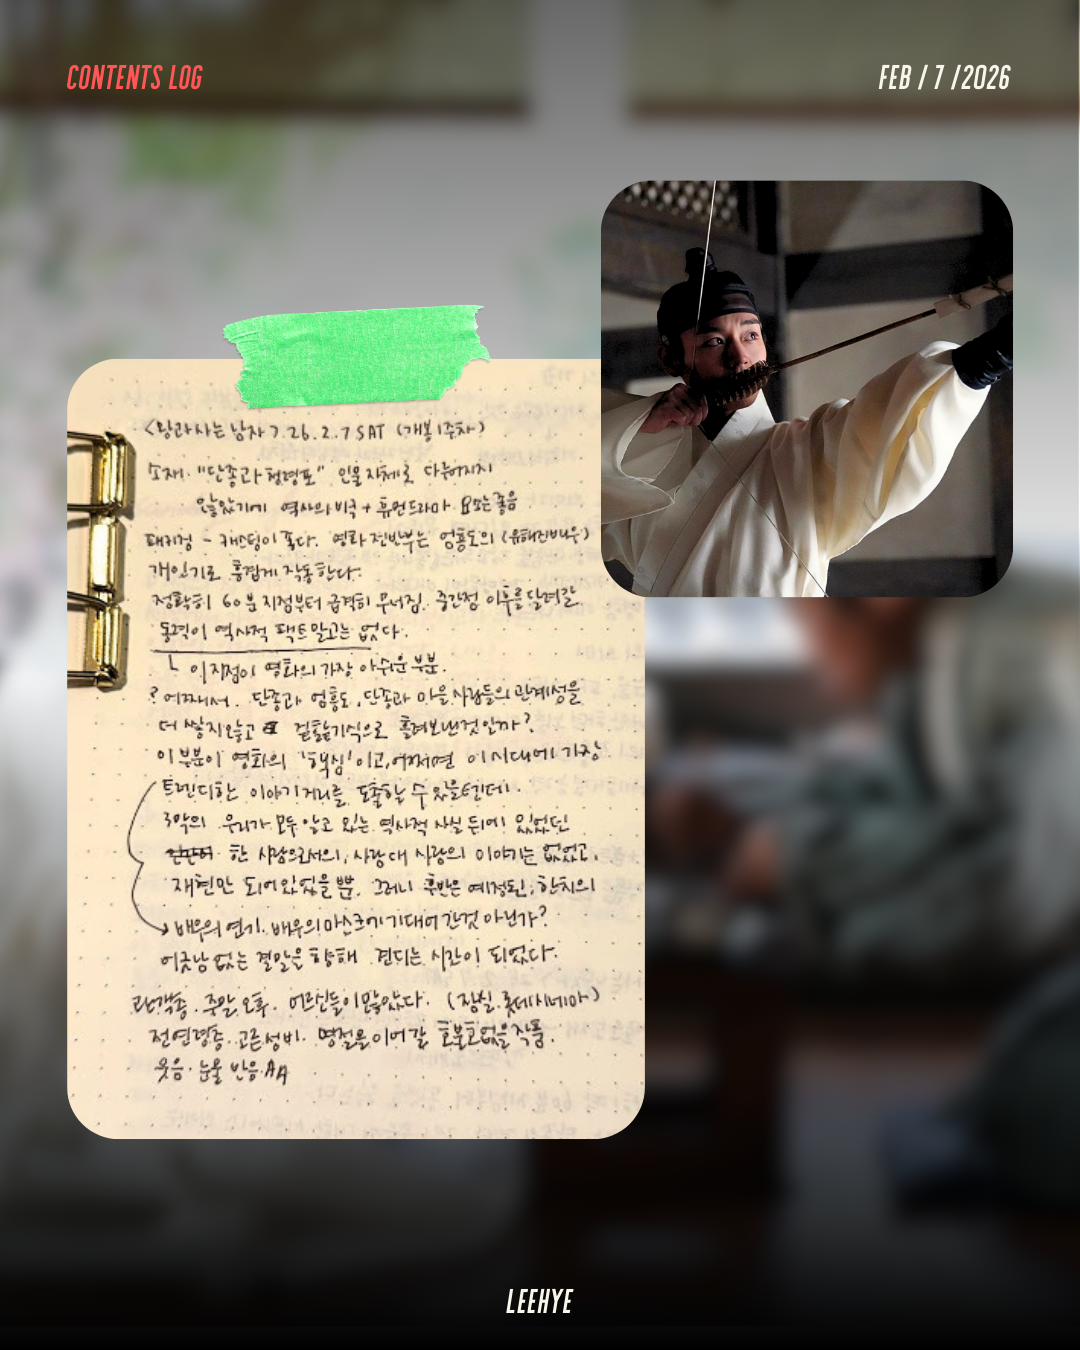 CONTENTS LOG
FEB / 7 /2026
<왕과 사는 남자>. 26. 2. 7 SAT (개봉 1주차)
소재. "단종과 청령포" 인물 자체로 다뤄지지
않았기에 역사의 비극 + 휴먼드라마 요소는 좋음
패키징 - 캐스팅이 좋다. 영화 전반부는 엄흥도의 (유해진 배우)
개인기로 흥겹게 작동한다.
정확히 60분 지점부터 급격히 무너짐. 중간점 이후를 달려갈
동력이 역사적 팩트말고는 없다.
└ 이 지점이 영화의 가장 아쉬운 부분.
? 어째서. 단종과 엄흥도, 단종과 마을 사람들의 관계성을
더 쌓지않고 겉핥기식으로 흘려보낸것일까?
이 부분이 영화의 '핵심'이고, 어쩌면 이 시대에 가장
트렌디한 이야기거리를 도출할 수 있을텐데
3막의 우리가 모두 알고 있는 역사적 사실 뒤에 있었던
한 사람으로서의, 사람 대 사람의 이야기는 없었고,
재현만 되어있었을 뿐. 그러니 후반은 예정된, 한치의
배우의 연기. 배우의 마스크에 기대어 간것 아닌가?
어긋남 없는 결말을 향해 견디는 시간이 되었다.
관객층. 주말 오후. 어르신들이 많았다. (잠실. 롯데시네마)
전연령층. 고른 성비. 명절을 이어갈 호불호없을 작품.
웃음. 눈물 반응. AA
LEEHYE